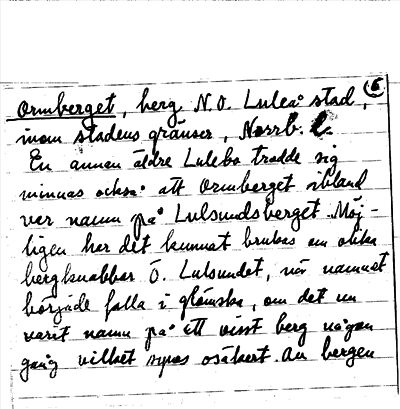 6
Ormberget, berg N.O. Luleå stad,
inom stadens gränser, Norrb. l.
En annan äldre Lulebo trodde sig
minnas också att Ormberget ibland
var namn på Lulsundsberget. Möj-
ligen har det kunnat brukas om olika
bergknabbar Ö. Lulsundet, när namnet
började falla i glömska, om det nu
varit namn på ett visst berg någon
gång vilket synes osäkert. Av bergen